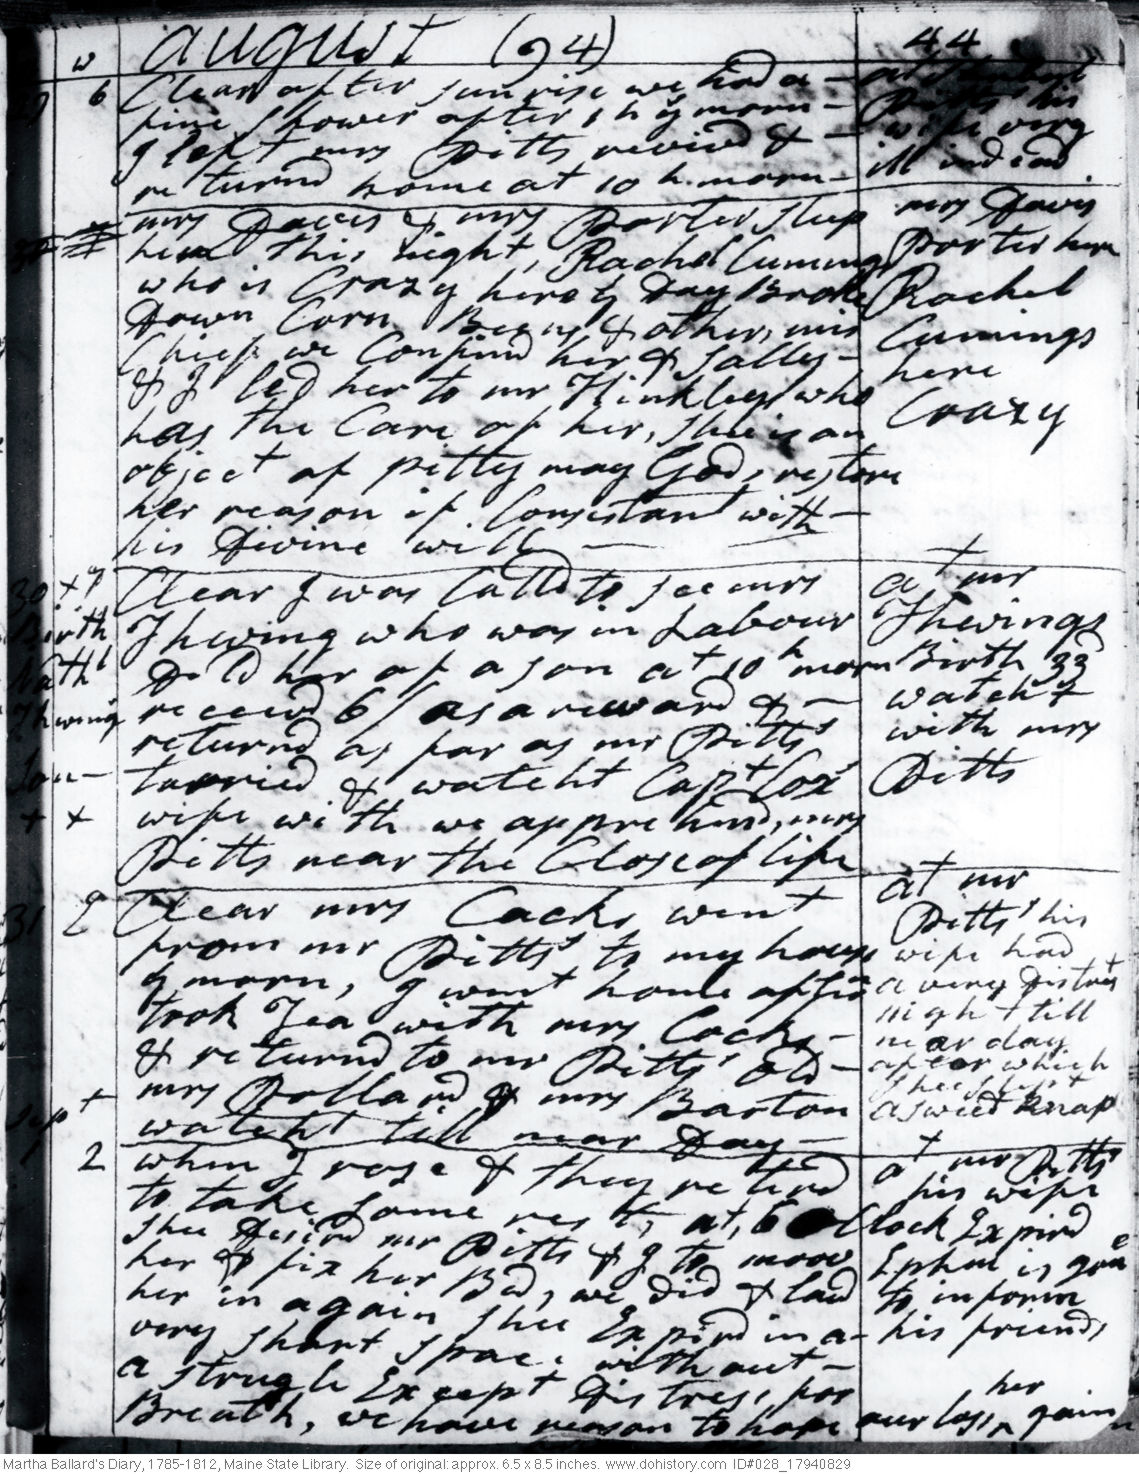 w august (94) 44
29 6 Clear after sun rise we had a –
fine shower after 1 h morn –
I left mrs Pitts revivd & –
returnd home at 10 h. morn –
at
Pitts his
wife very
ill indead
mrs Davis & mrs Porter sleep
here this night, Rachel Cumings
who is Crazy here by Day Broke
Down Corn Beens & other mis
Chief we Confind her & Sally –
& I led her to mr Hinkleys who
has the Care of her, shee is an
object of pitty may God, restore
her reason if Consistant with –
his Divine will –
mrs Davis
Porter here
Rachel
Cumings
here
Crazy
30 + 7 Clear I was Calld to see mrs
Birth Thwing who was in Labour
Nathl Dd her of a son at 10 h morn
Thwing receivd 6/ as a reward & –
returnd as far as mr Pitts's
son – tarried & watcht Capt Cox's
+ + wife with we apprehind, mrs
Pitts near the Close of life
at mr
Thwings
Birth 33d
watcht
with mrs
Pitts
31 E Clear mrs Cocks went
from mr Pitts's to my house
morn, I went home allso
took Tea with mrs Cocks –
& returnd to mr Pitts' old –
mrs Dolland & mrs Barton
watcht till near Day –
at mr
Pitts' his
wife had
a very Distrest
night till
near day
after which
shee slept
a sweet knap
Sept
1 2 when I rose & they retird
to take some rest, at, 6 oClock
shee desird mr Pitts & I to moov
her & fix her Bed, we did & laid
her in again shee Expird in a –
very short space without –
a strugle Except Distress, for
Breath, we have reason to hope our loss, her gain
at mr Pitts'
his wife
Expird
Ephm is gone
to inform
his friends,
Martha Ballard's Diary, 1785-1812, Maine State Library. Size of original: approx. 6.5 x 8.5 inches. www.dohistory.com ID#028_17940829